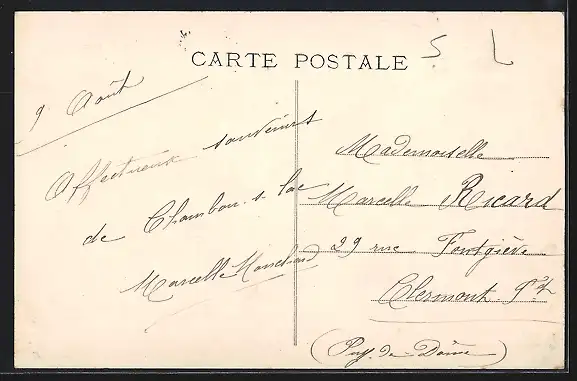 CARTE POSTALE
S L
9 Août
Affectueux souvenirs
de Chambon s. lac
Marcelle
Mademoiselle
Marcelle Ricard
29 rue Fontgiève
Clermont Fd
(Puy-de-Dôme)